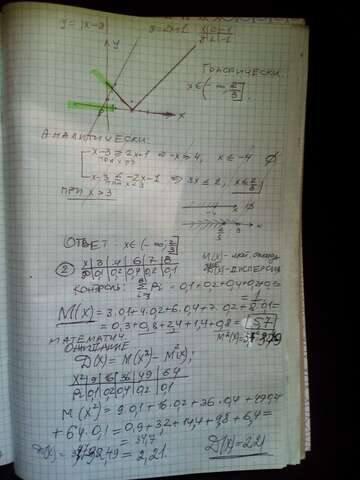 y = |x-3|
y = 2x+1
y
x
Графически:
x∈(-∞; 2/3]
Аналитически:
x-3 ≥ 2x+1 ⇒ -x ≥ 4, x ≤ -4 ∅
при x>3
x-3 ≤ -2x-1 ⇒ 3x ≤ 2, x ≤ 2/3
при x<3
при x>3
-4
3
x
2/3
3
x
Ответ x∈(-∞; 2/3]
2
x 3 4 6 7 8
P 0,1 0,2 0,4 0,2 0,1
M(x) - мат. ожид.
D(x) - дисперсия
Контроль: Pi = 0,1+0,2+0,4+0,2+0,1
= 1
M(x) = 3·0,1+4·0,2+6·0,4+7·0,2+8·0,1=
= 0,3+0,8+2,4+1,4+0,8 = 5,7
Математич.
ожидание
D(x) = M(x²) - M²(x);
x² 9 16 36 49 64
Pi 0,1 0,2 0,4 0,2 0,1
M(x²) = 9·0,1+16·0,2+36·0,4+49·0,2
+ 64·0,1 = 0,9+3,2+14,4+9,8+6,4=
= 34,7
D(x) = 32,49 = 2,21.
D(x) = 2,21